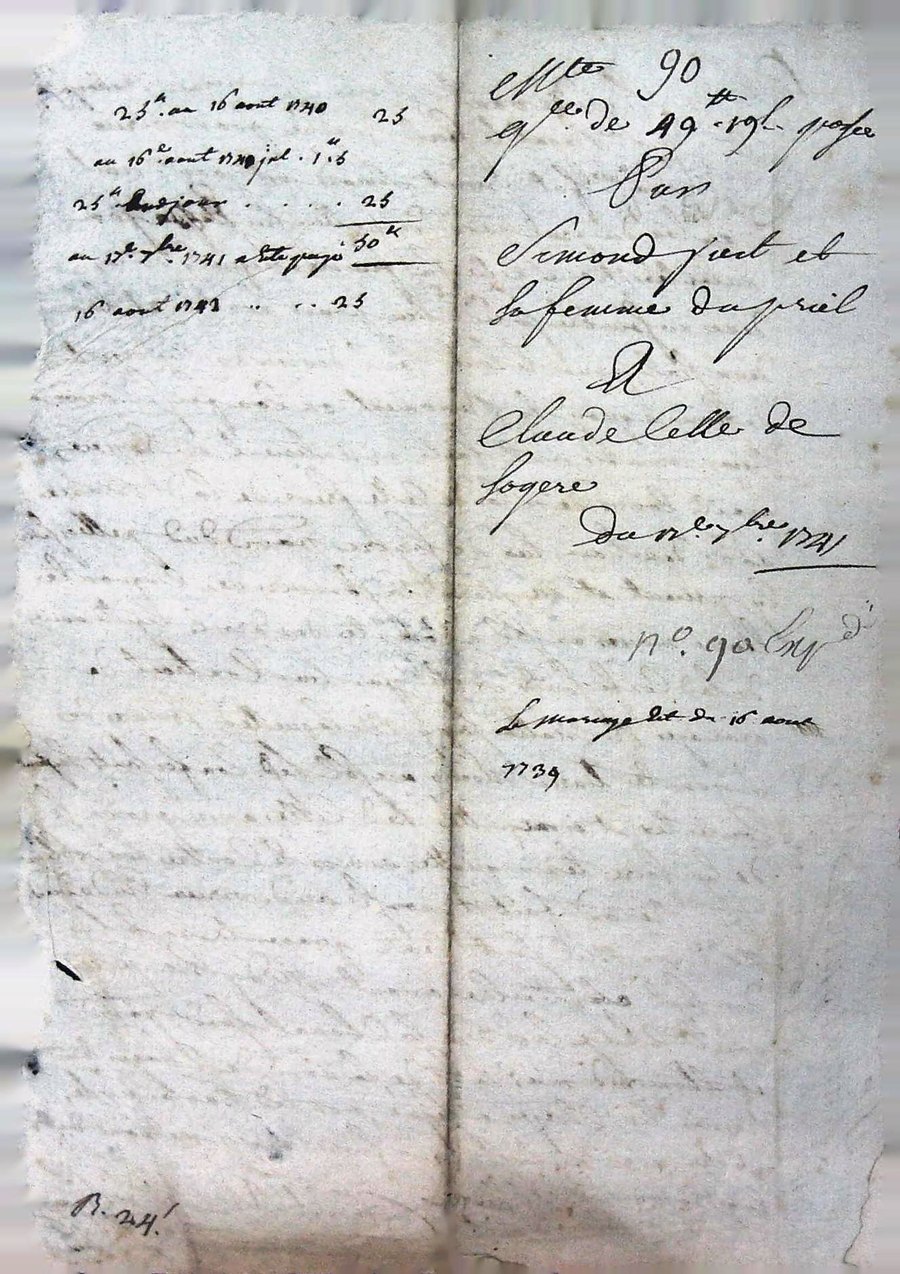 25ᵗᵗ au 16 aout 1740 25
au 16ᵉ aout 1740 jul. 1ᵗᵗ 5
25ᵗᵗ . . . . . 25
au 17ᵉ 7bre 1741 a esté payé 50ᵗᵗ
16 aout 1742 .. .. 25
R. 24!
90
qᵉᵉ de 49ᵗᵗ 19ˢ passée
Par
Simond fuct et
sa femme du priel
A
Claude Celle de
sogere
Du 17ᵉ 7bre 1741
nº. 90
Le mariage dit du 16 aout
1739